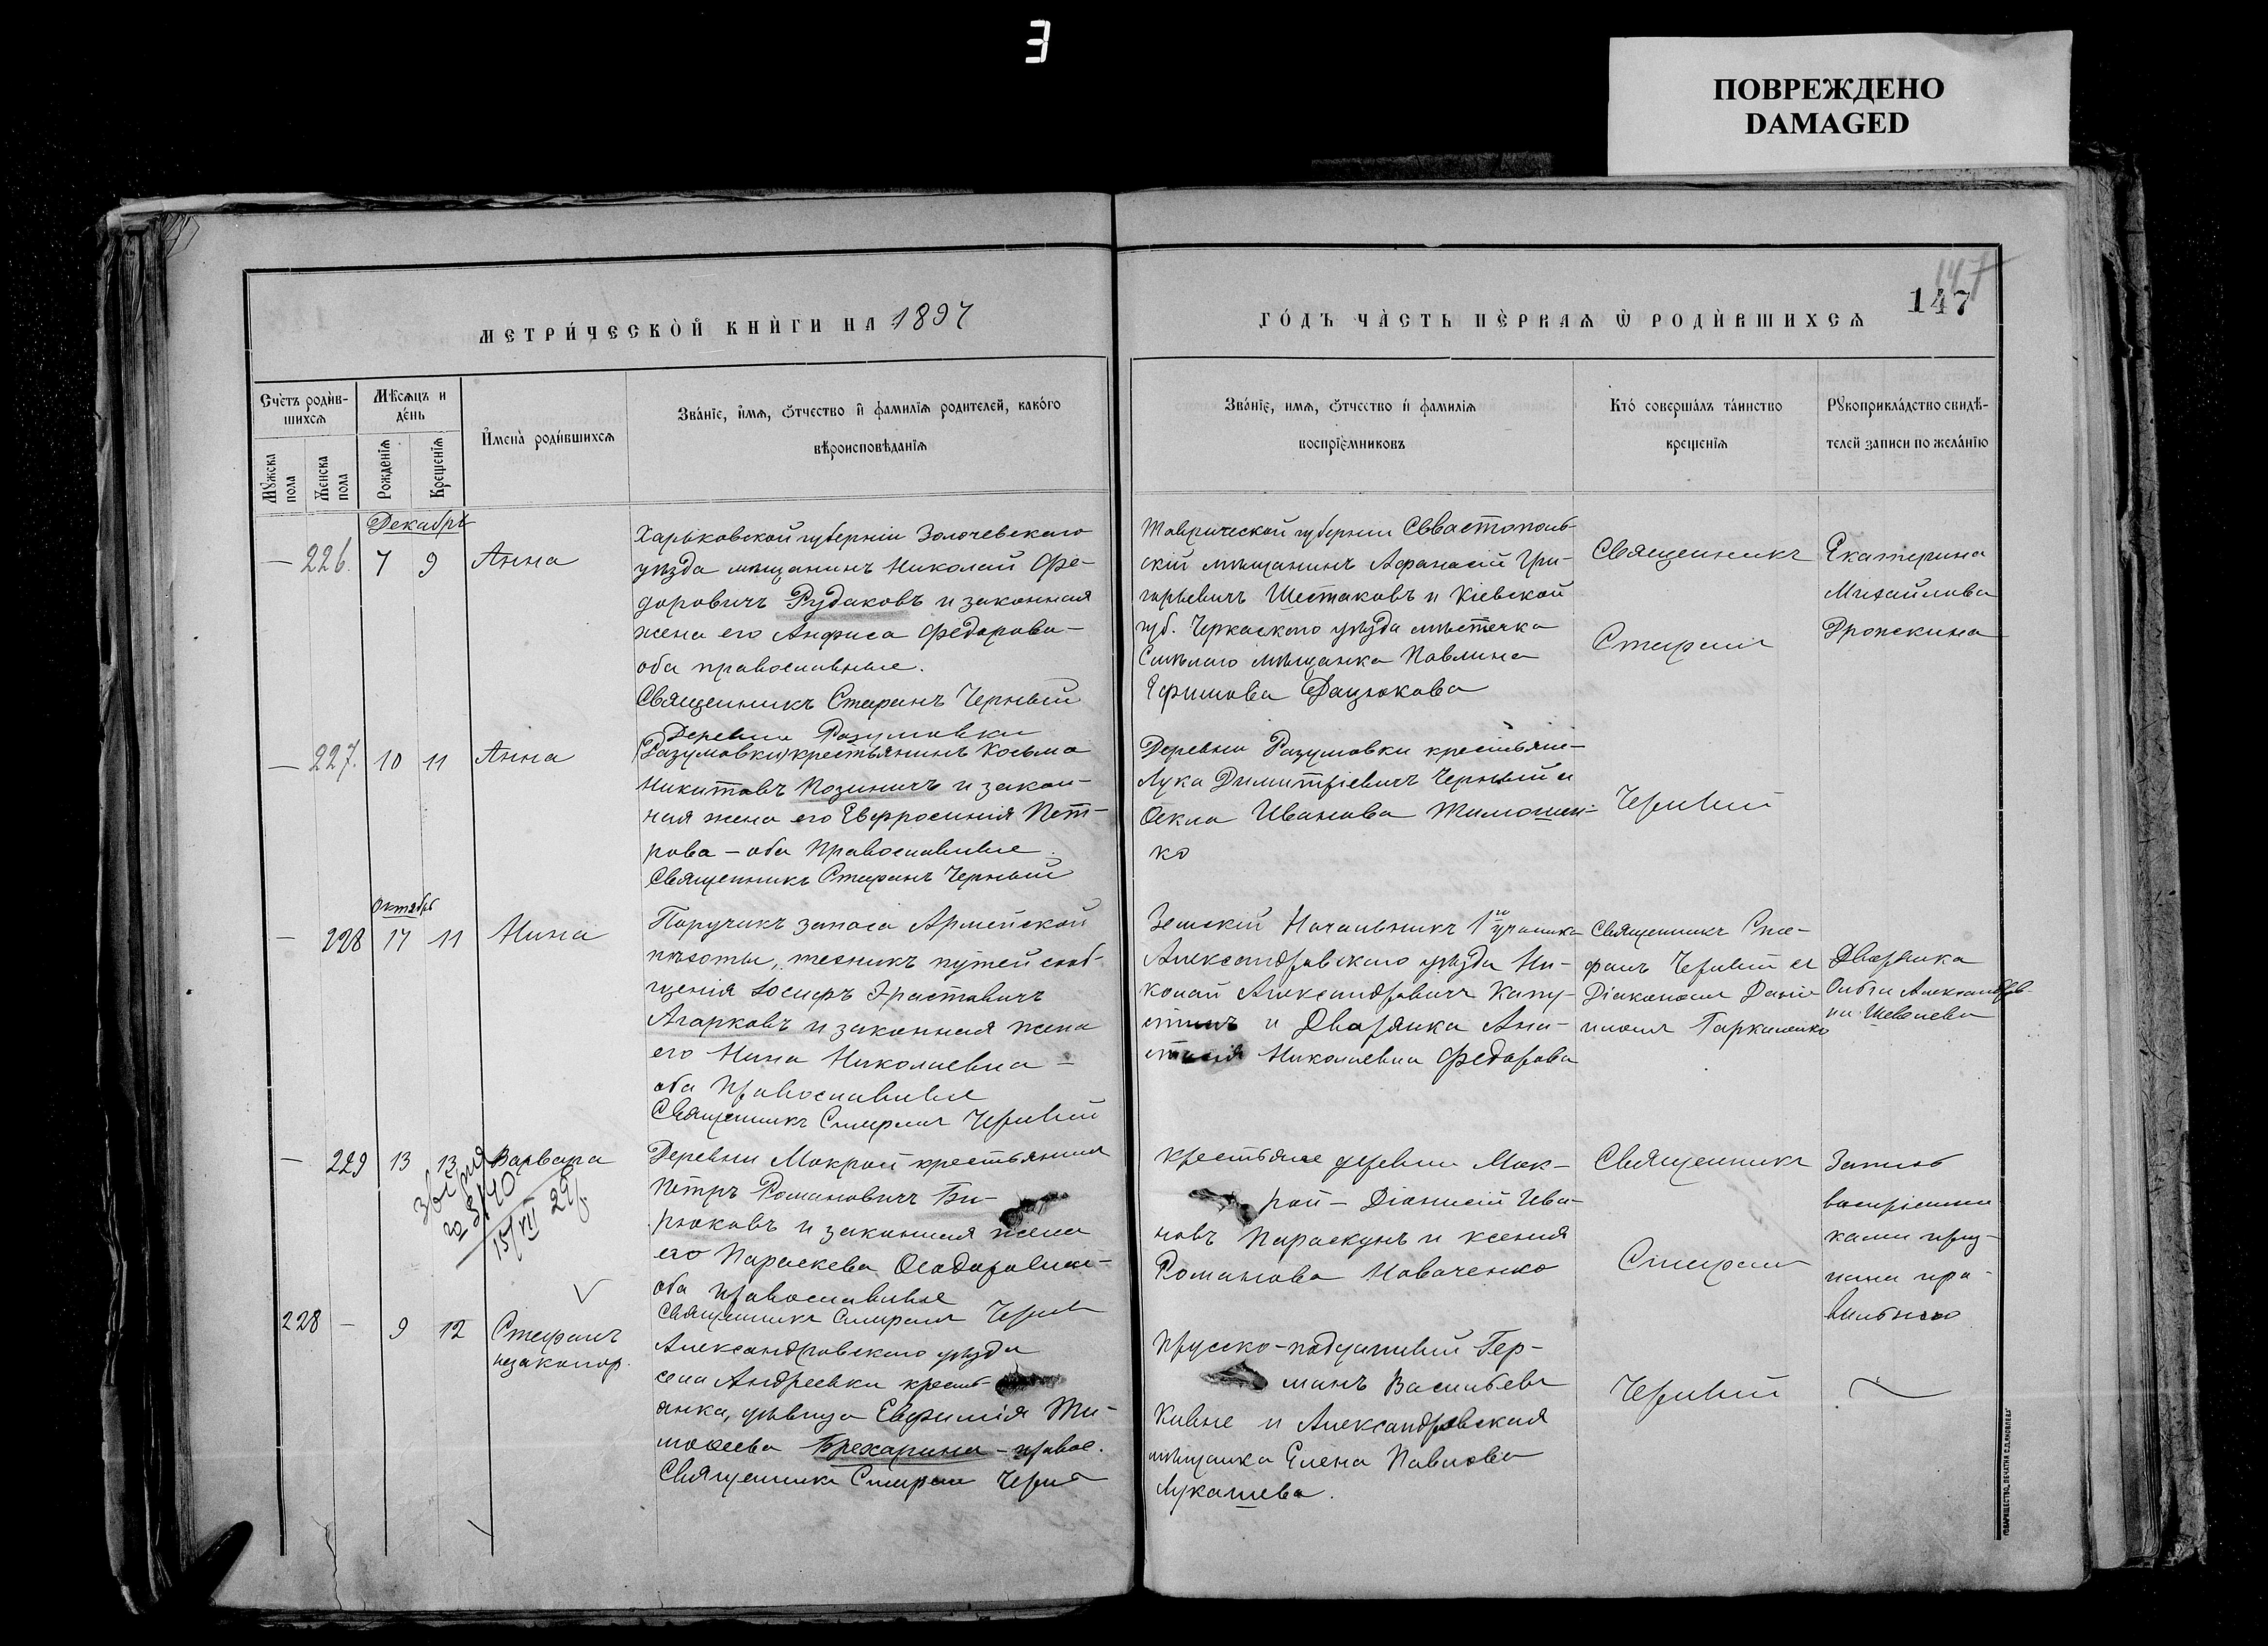 Е
ПОВРЕЖДЕНО
DAMAGED
147
147
МЕТРИ́ЧЕСКОЙ КНИ́ГИ НА 1897
ГО́ДЪ ЧА́СТЬ ПЕ́РВАѦ Ѡ РОДИ́ВШИХСѦ
Сче́тъ роди́в-
шихсѧ
Мѣ́сѧцъ и
де́нь
Мꙋжска
пола
Женска
пола
Рожденїѧ
Крещенїѧ
Имена̀ роди́вшихсѧ
Зва́нїе, и́мѧ, ѻ́тчество и фамилїѧ родителей, како́го
вѣроисповѣданїѧ
Зва́нїе, имѧ, ѻ́тчество и́ фамилїѧ
воспрїе́мниковъ
Кто́ соверша́лъ та́инство
крещенїѧ
Рꙋкоприкла́дство свидѣ́-
телей записи по жела́нїю
Декабрь
— 226. 7 9 Анна
Харьковской губерніи Золочевскаго
уѣзда мѣщанинъ Николай Фе-
доровичъ Рудаковъ и законная
жена его Анфиса Федорова-
оба православные.
Священникъ Стефанъ Черный
Таврической губерніи Севастополь-
скій мѣщанинъ Афанасій Гри-
горьевичъ Шестаковъ и Кіевской
губ. Черкаскаго уѣзда мѣстечка
Смѣлаго мѣщанка Павлина
Ефимова Дацюкова
Священникъ
Стефанъ
Екатерина
Михайлова
Дропскина
— 227. 10 11 Анна
Деревни Разумовки
(Разумовки) крестьянинъ Косьма
Никитовъ Позиничъ и закон-
ная жена его Евфросинія Пет-
рова – оба Православные.
Священникъ Стефанъ Черный
Деревни Разумовки крестьяне-
Лука Димитріевичъ Черный и
Ѳекла Иванова Тимошен-
ко
Черный
Октябрь
— 228 17 11 Нина
Поручикъ запаса Армейской
пѣхоты, техникъ путей сооб-
щенія Іосифъ Эрастовичъ
Агарковъ и законная жена
его Нина Николаевна –
оба Православные
Священникъ Стефанъ Черный
Земскій Начальникъ 1го участка
Александровскаго уѣзда Ни-
колай Александровичъ Капу-
стинъ и Дворянка Ана-
стасія Николаевна Федорова
Священникъ Сте-
фанъ Черный съ
Діакономъ Дані-
иломъ Гаркиленко
Дворянка
Ольга Александров-
на Шевелева
— 229 13 13 Варвара
15/VII 29 г.
Деревни Мокрой крестьянинъ
Петръ Романовичъ Би-
рюковъ и законная жена
его Параскева Ѳеодоровна-
оба православные
Священникъ Стефанъ Черный
крестьяне деревни Мок-
рой – Діонисій Ива-
новъ Параскунъ и Ксенія
Романова Новаченко
Священникъ
Стефанъ
Запись
воспріемни
ками приз-
нана пра-
вильною
228 — 9 12 Стефанъ
незаконор.
Александровскаго уѣзда
села Андреевки кресть-
янка, дѣвица Евфимія Ти-
моѳеева Брехарина – правос.
Священникъ Стефанъ Черный
Прусско-подданный Гер-
манъ Васильевъ
Кивне и Александровская
мѣщанка Елена Павлова
Лукашева.
Черный